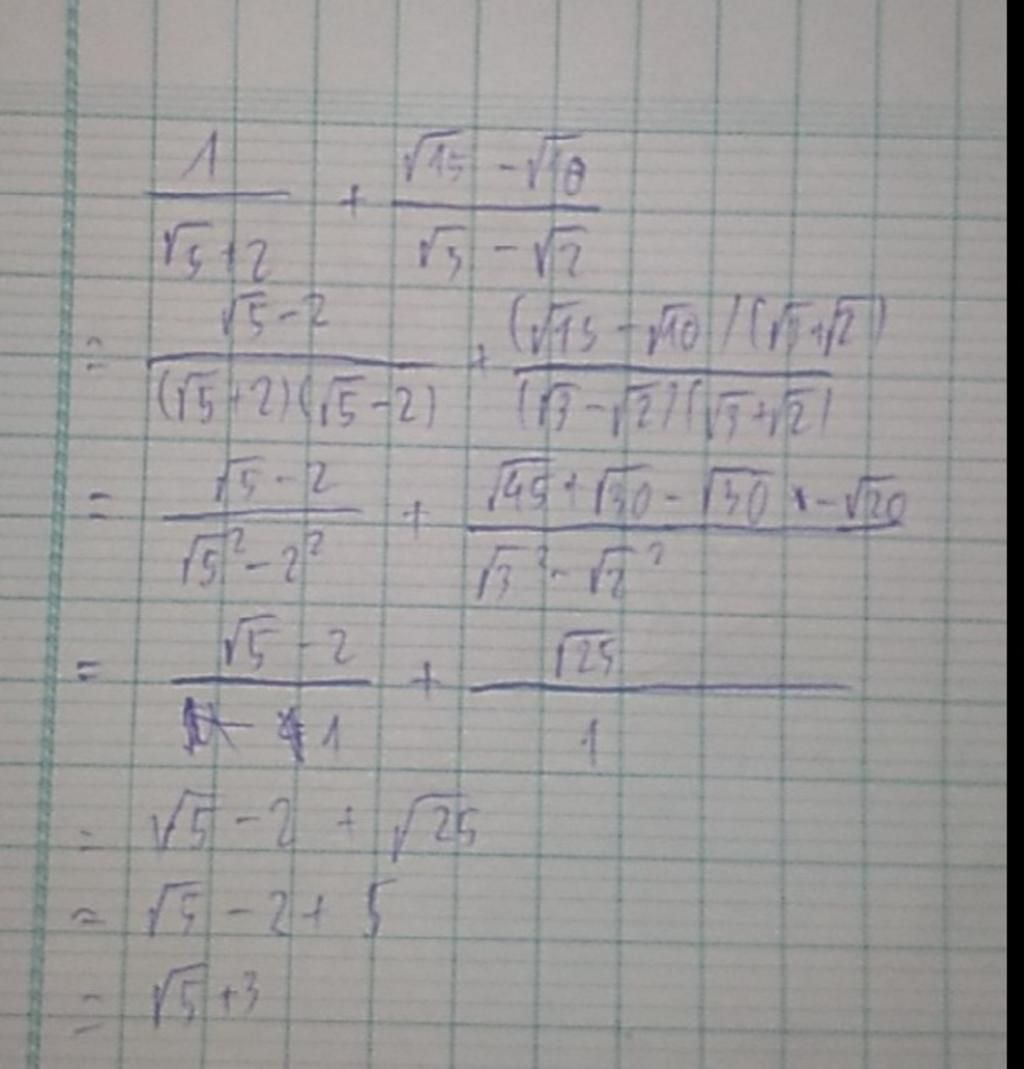 1/(√5+2) + (√15 - √10)/(√3 - √2)
= (√5-2)/((√5+2)(√5-2)) + ((√15 - √10)(√3+√2))/((√3-√2)(√3+√2))
= (√5-2)/(√5² - 2²) + (√45 + √30 - √30 - √20)/(√3² - √2²)
= (√5-2)/1 + √25/1
= √5 - 2 + √25
= √5 - 2 + 5
= √5 + 3